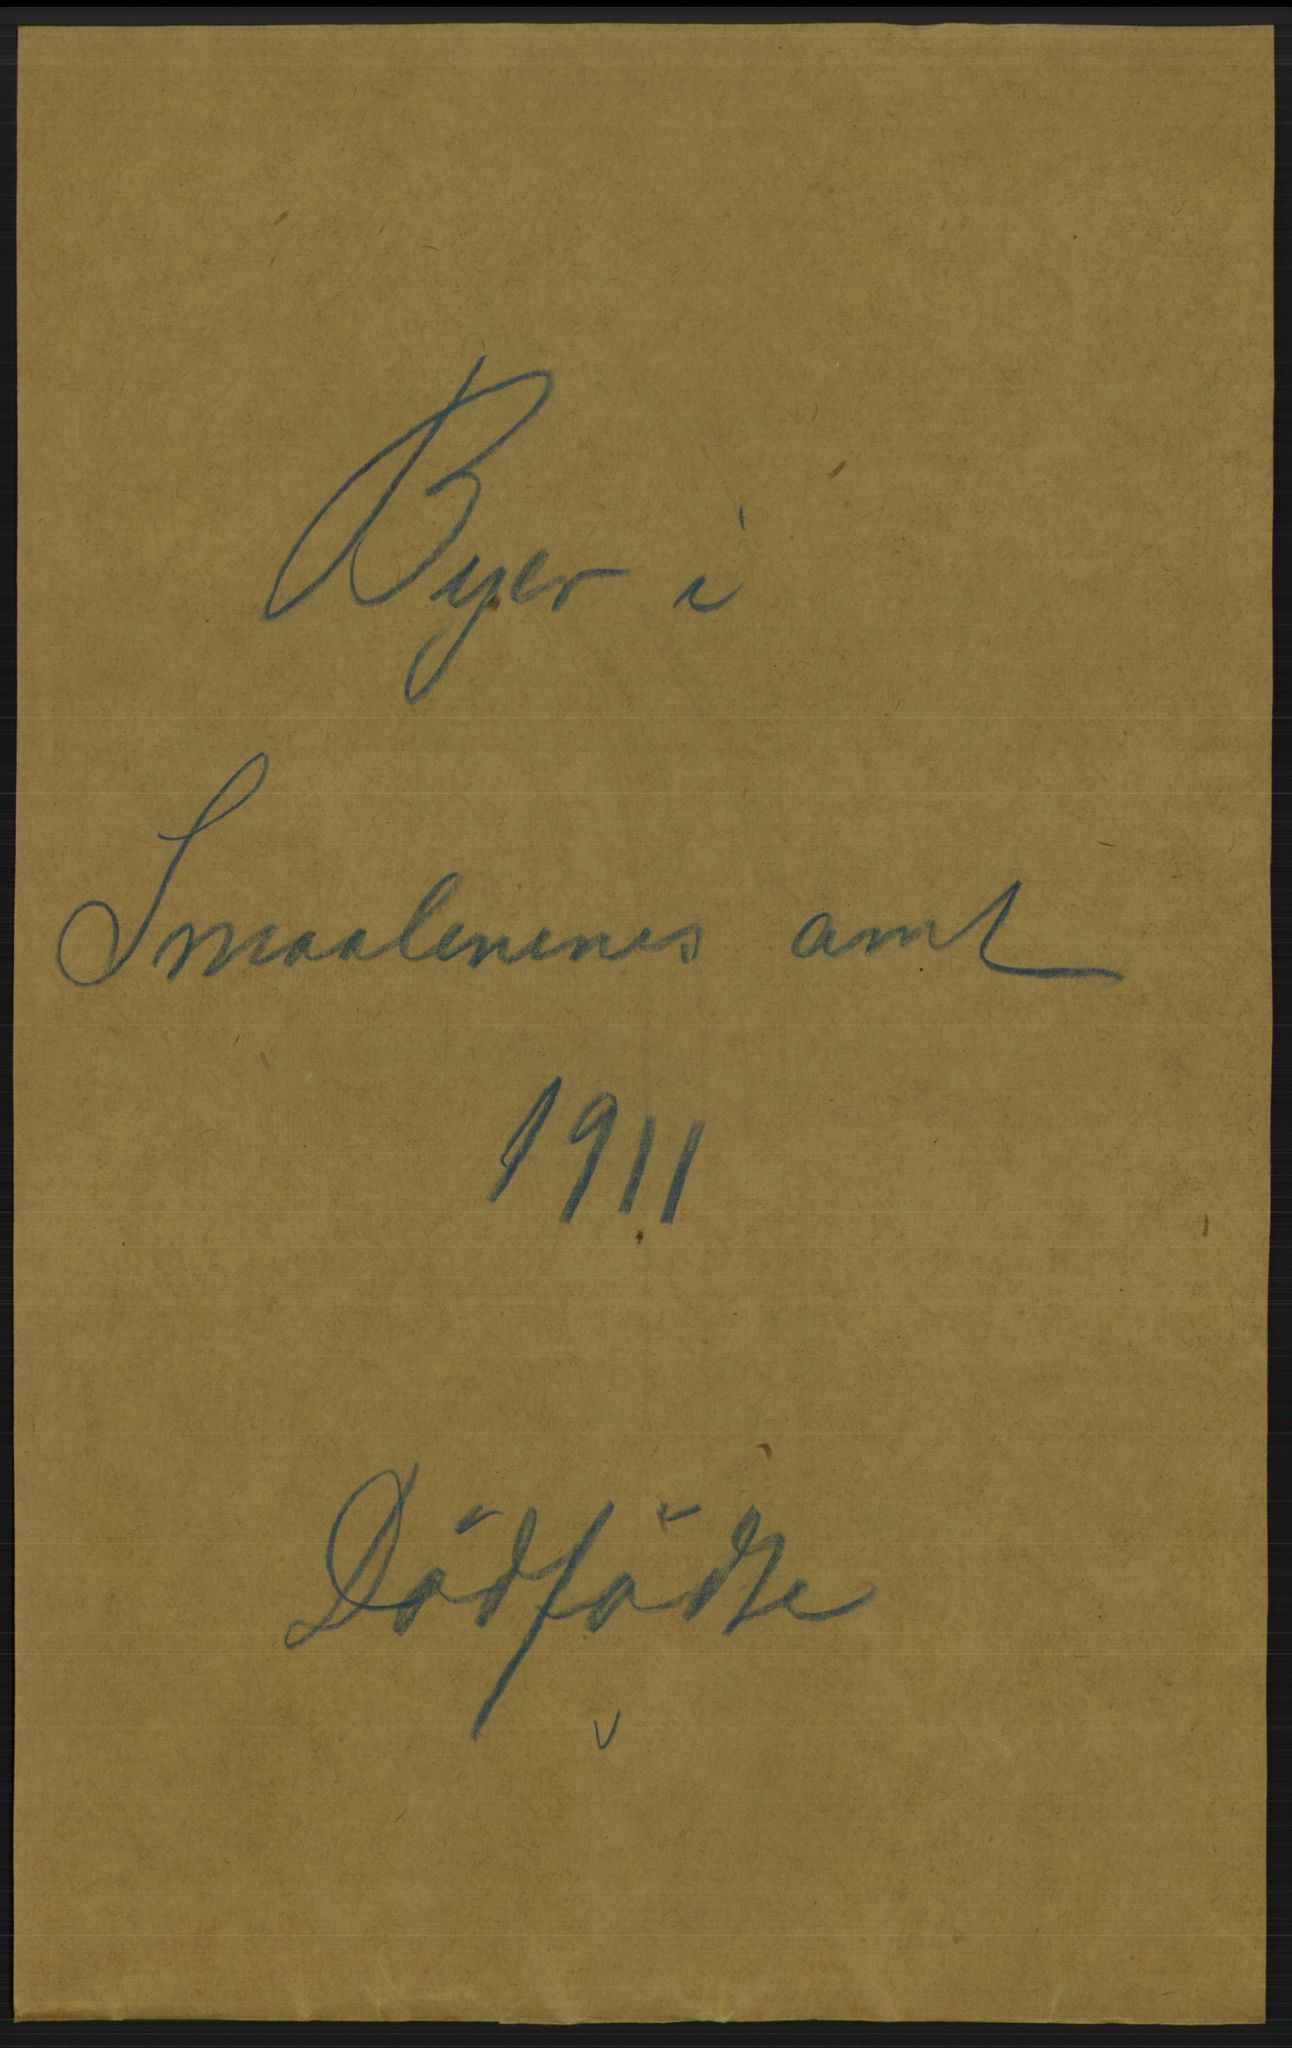 Byer i
Smaalenenes amt
1911
Dödfödte